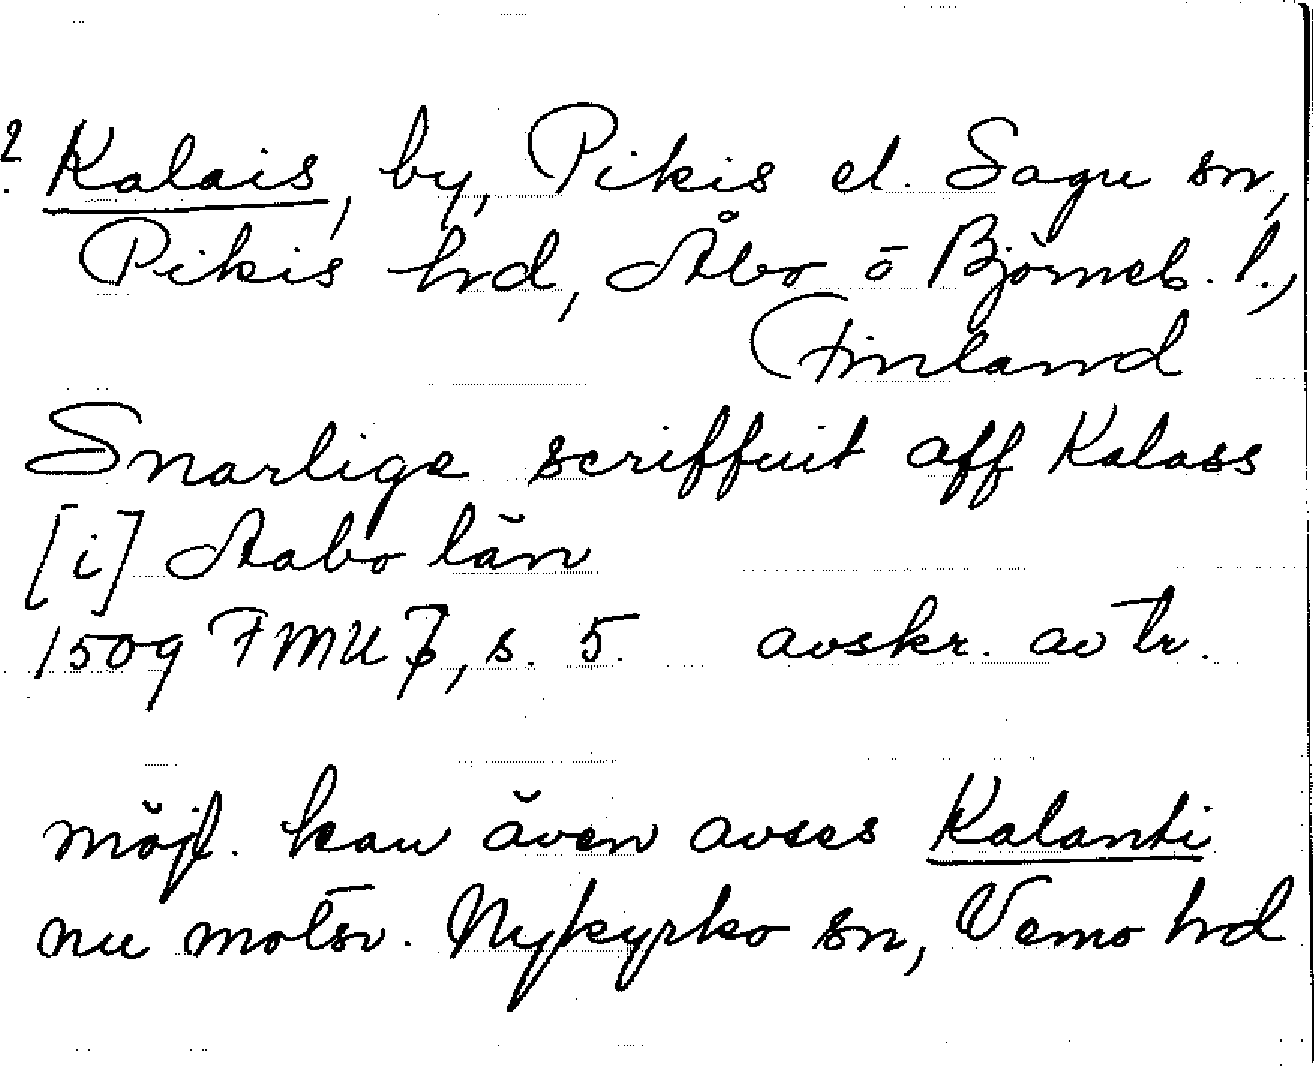 ? Kalais, by, Pikis el. Sagu sn,
Pikis hrd, Åbo o Björneb. l.,
Finland
Snarlige scriffuit aff Kalass
[i] Aabo län
1509 FMU 7, s. 5. avskr. av tr.
möjl. kan även avses Kalanti
nu motsv. Nykyrko sn, Vemo hrd